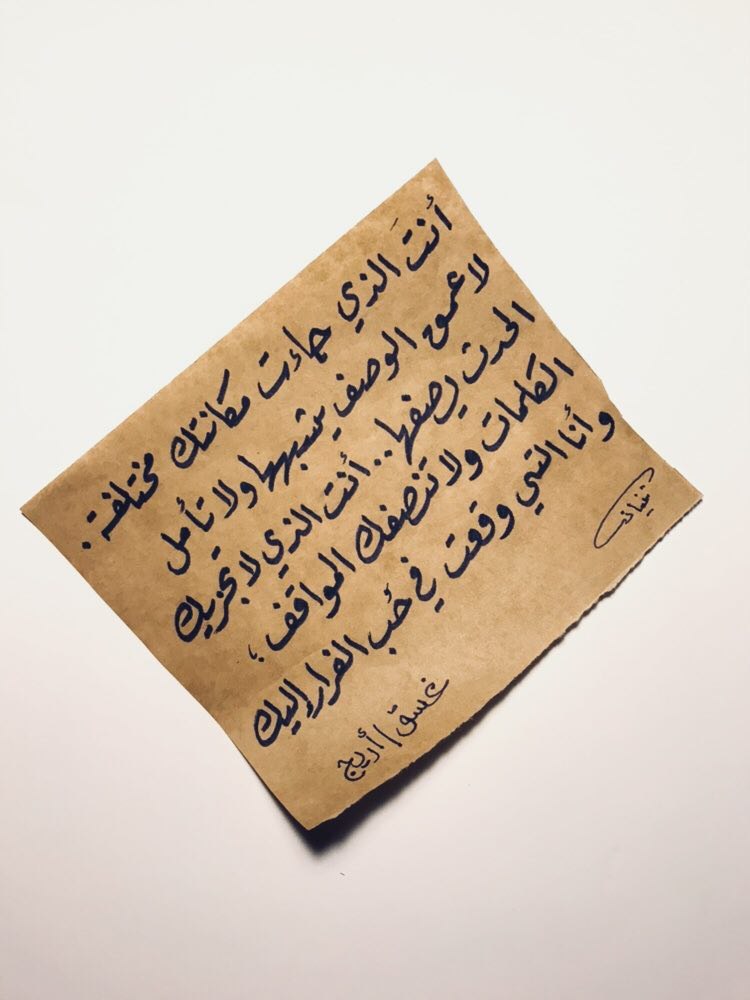 أنتَ الذي جاءت مكانتك مختلفة.
لا عمق الوصف يشبهها ولا تأمل
الحدث يصفها.. أنت الذي لا تجزيك
الكلمات ولا تنصفك المواقف؛
وأنا التي وقعت في حُب الفرار إليك
غسق/أريج